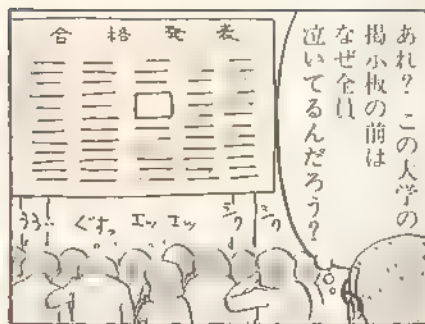 あれ？この大学の
掲示板の前は
なぜ全員
泣いてるんだろう？
合格発表
ぐすっ
エッ エッ